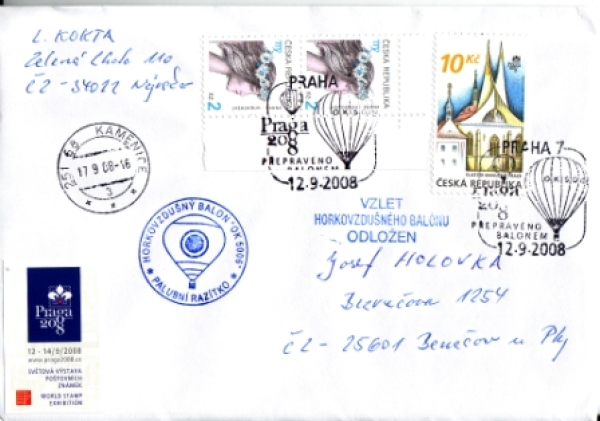 L. KOKTA
Zelená Lhota 110
ČZ - 34022 Nýrsko
ČESKÁ REPUBLIKA
2 Kč
ČESKÁ REPUBLIKA
2 Kč
10 Kč
ČESKÁ REPUBLIKA
PRAHA
OK5
Praga
2008
PŘEPRAVENO
BALONEM
12.9.2008
PRAHA 7
Praga
2008
PŘEPRAVENO
BALONEM
12.9.2008
251 68 KAMENICE
17 9 08-16
3
HORKOVZDUŠNÝ BALON "OK 5006"
PALUBNÍ RAZÍTKO
VZLET
HORKOVZDUŠNÉHO BALONU
ODLOŽEN
Josef HOLOVKA
1254
ČZ - 25601 Benešov u Phy
Praga
2008
12 - 14/9/2008
www.praga2008.cz
SVĚTOVÁ VÝSTAVA
POŠTOVNÍCH
ZNÁMEK
WORLD STAMP
EXHIBITION